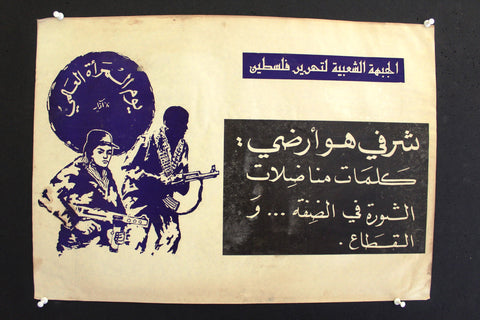 الجبهة الشعبية لتحرير فلسطين
يوم المرأة العالمي
٨ آذار
شرفي هو أرضي:
كلمات مناضلات
الثورة في الضفة ... و
القطاع.